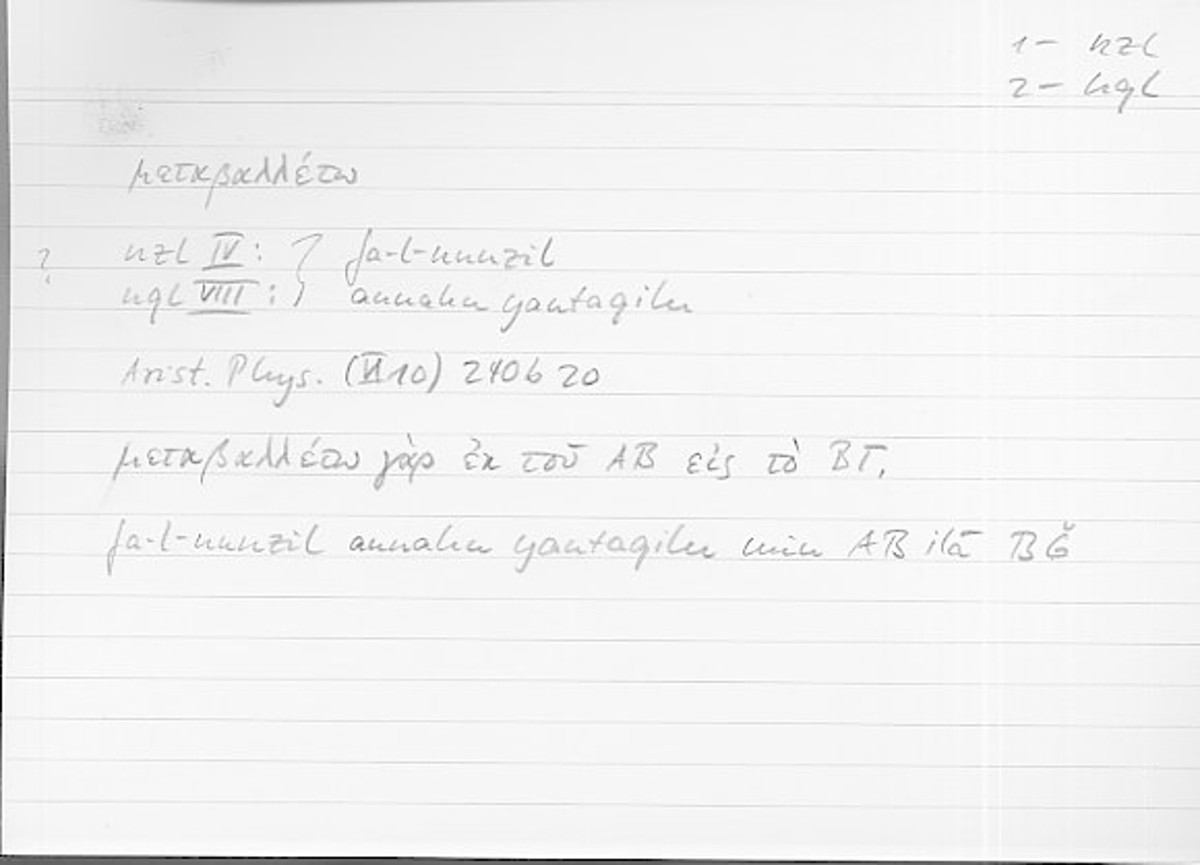 1 – nzl
2 – nql
μεταβαλλέτω
nzl IV : } fa-l-nunzil
? nql VIII : } annahu yantaqilu
Arist. Phys. (VI 10) 240b 20
μεταβαλλέτω γὰρ ἐκ τοῦ AB εἰς τὸ BΓ,
fa-l-nunzil annahu yantaqilu min AB ilā BǦ